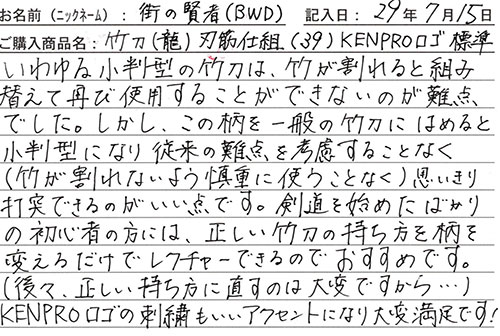 お名前（ニックネーム）：街の賢者(BWD) 記入日：29年7月15日
ご購入商品名：竹刀(龍)刃筋仕組(39)KENPROロゴ標準
いわゆる小判型の竹刀は、竹が割れると組み
替えて再び使用することができないのが難点
でした。しかし、この柄を一般の竹刀にはめると
小判型になり従来の難点を考慮することなく
(竹が割れないよう慎重に使うことなく)思いきり
打突できるのがいい点です。剣道を始めたばかり
の初心者の方には、正しい竹刀の持ち方を柄を
変えるだけでレクチャーできるのでおすすめです。
(後々、正しい持ち方に直すのは大変ですから…)
KENPROロゴの刺繍もいいアクセントになり大変満足です!